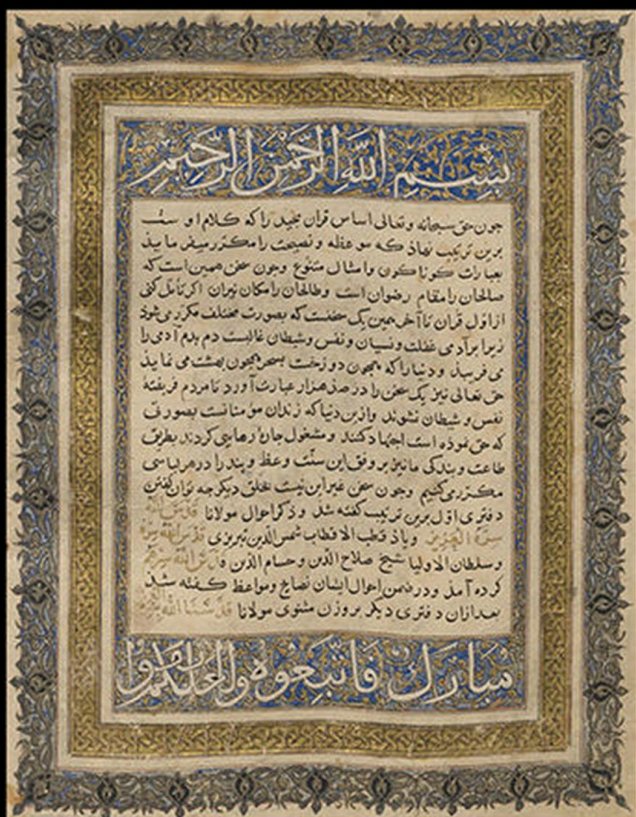 بسم الله الرحمن الرحیم
جون حق سبحانه و تعالی اساس قران مجید را که کلام اوست
برین ترتیب نهاذ که موعظه و نصیحت را مکرر میفرمایذ
بعبارات کوناکون و امثال متنوع وجون سخن همین است که
صالحان را مقام رضوان است و طالحان را مکان نیران اکر تأمل کنی
از اول قران تا آخر همین یک سخنست که بصورت مختلف مکرر می شوذ
زیرا بر آدمی غفلت و نسیان و نفس و شیطان غالبست دم بدم آدمی را
می فریبذ و دنیا را که همجون دوزخت بسحر همجون بهشت می نمایذ
حق تعالی نیز یک سخن را در صذ هزار عبارت آورد تا مردم فریفتهٔ
نفس و شیطان نشوند و ازین دنیا که زندان مؤمنانست بصورت
که حق نموذه است اجتهاد کنند و مشغول جان رهایی کردند بطریق
طاعت و بندکی ما نیز بر وفق این سنت وعظ و پند را در هر لباسی
مکرر می کنیم وجون سخن غیر این نیست بخلق دیکر جه توان کفتن
دفتری اول برین ترتیب کفته شذ و ذکر احوال مولانا قدس الله
سره العزیز و یاذ قطب الاقطاب شمس الدین تبریزی قدس الله سره
و سلطان الاولیا شیخ صلاح الدین و حسام الدین قدس الله سرهم
کرده آمذ و در ضمن احوال ایشان نصایح و مواعظ کفته شذ
بعد ازان دفتری دیکر بر وزن مثنوی مولانا قدسنا الله بسره العزیز
مبارك فاتبعوه واتقوا لعلكم